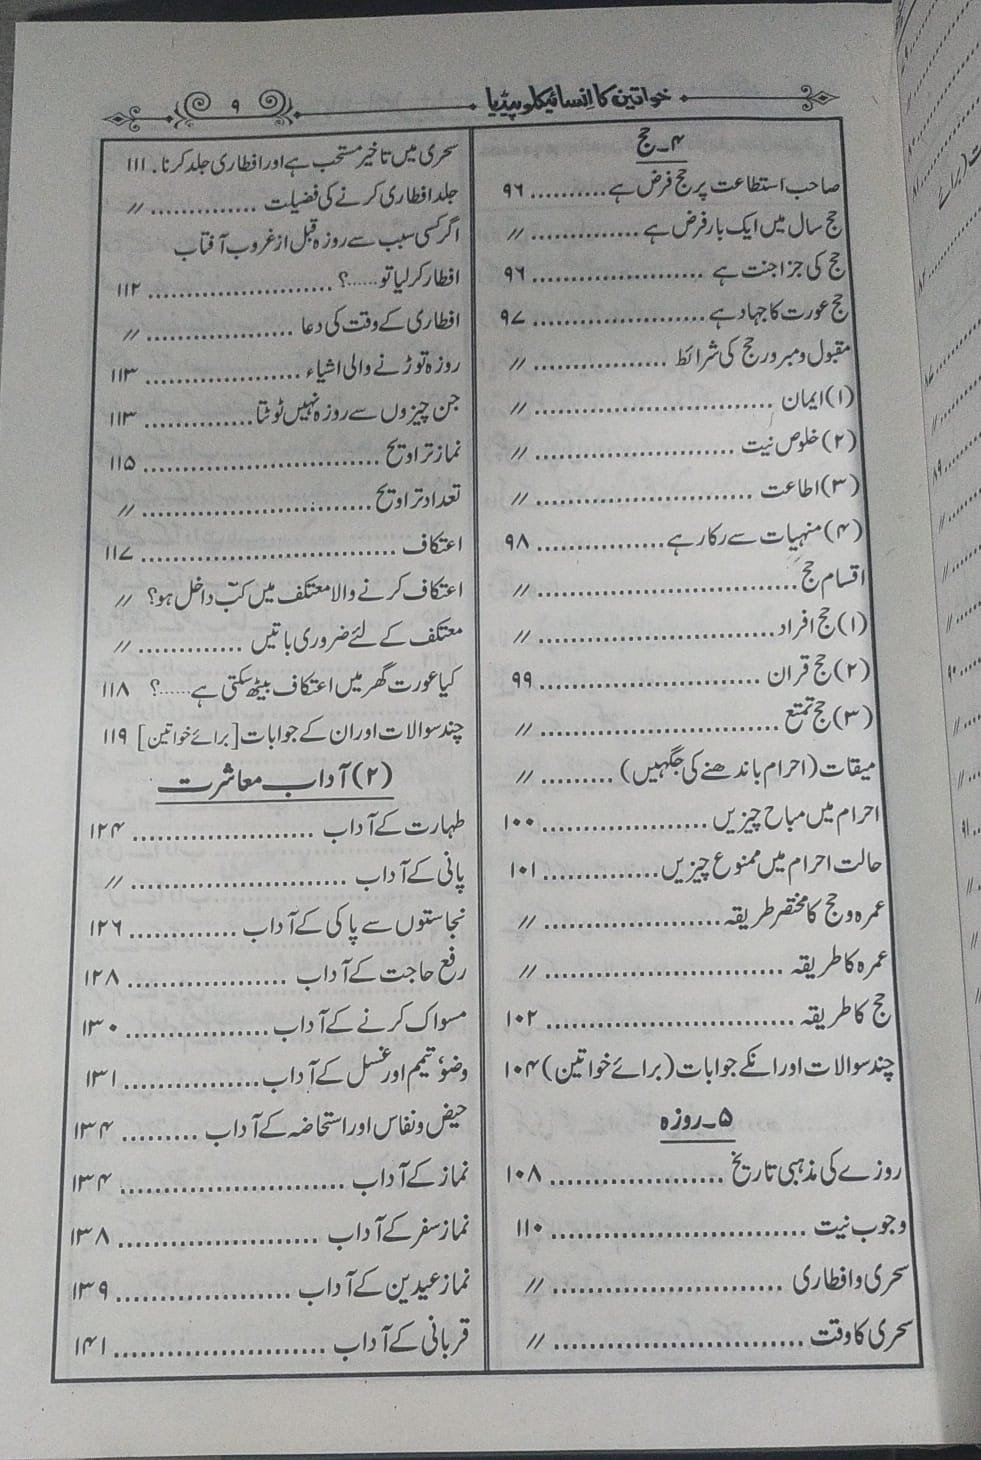 خواتین کا انسائیکلوپیڈیا
۹
۴۔ حج
صاحب استطاعت پر حج فرض ہے .......... ۹۶
حج سال میں ایک بار فرض ہے .............. //
حج کی جزا جنت ہے ...................... ۹۶
حج عورت کا جہاد ہے ...................... ۹۷
مقبول و مبرور حج کی شرائط ................ //
(۱) ایمان ............................ //
(۲) خلوص نیت ........................ //
(۳) اطاعت .......................... //
(۴) منہیات سے رکا رہے ................ ۹۸
اقسام حج ............................ //
(۱) حج افراد .......................... //
(۲) حج قران .......................... ۹۹
(۳) حج تمتع .......................... //
میقات (احرام باندھنے کی جگہیں) .......... //
احرام میں مباح چیزیں .................... ۱۰۰
حالت احرام میں ممنوع چیزیں .............. ۱۰۱
عمرہ و حج کا مختصر طریقہ .................. //
عمرہ کا طریقہ .......................... //
حج کا طریقہ .......................... ۱۰۲
چند سوالات اور انکے جوابات (برائے خواتین) ۱۰۴
۵۔ روزہ
روزے کی مذہبی تاریخ .................... ۱۰۸
وجوب نیت ............................ ۱۱۰
سحری و افطاری ........................ //
سحری کا وقت .......................... //
سحری میں تاخیر مستحب ہے اور افطاری جلد کرنا . ۱۱۱
جلد افطاری کرنے کی فضیلت .............. //
اگر کسی سبب سے روزہ قبل از غروب آفتاب
افطار کر لیا تو ......؟ ...................... ۱۱۲
افطاری کے وقت کی دعا .................. //
روزہ توڑنے والی اشیاء .................... ۱۱۳
جن چیزوں سے روزہ نہیں ٹوٹتا .............. ۱۱۳
نماز تراویح ............................ ۱۱۵
تعداد تراویح .......................... //
اعتکاف .............................. ۱۱۷
اعتکاف کرنے والا معتکف میں کب داخل ہو؟ //
معتکف کے لئے ضروری باتیں .............. //
کیا عورت گھر میں اعتکاف بیٹھ سکتی ہے ......؟ ۱۱۸
چند سوالات اور ان کے جوابات [برائے خواتین] ۱۱۹
(۲) آداب معاشرت
طہارت کے آداب .................... ۱۲۴
پانی کے آداب ........................ //
نجاستوں سے پاکی کے آداب .............. ۱۲۶
رفع حاجت کے آداب .................. ۱۲۸
مسواک کرنے کے آداب ................ ۱۳۰
وضو، تیمم اور غسل کے آداب .............. ۱۳۱
حیض و نفاس اور استحاضہ کے آداب .......... ۱۳۴
نماز کے آداب ........................ ۱۳۴
نماز سفر کے آداب ...................... ۱۳۸
نماز عیدین کے آداب .................... ۱۳۹
قربانی کے آداب ...................... ۱۴۱